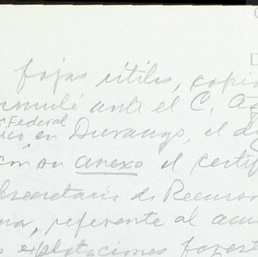 fojas útiles, copia
formulé ante el C. Ag
Federal
ico en Durango, el d
ción su anexo el certif
bsecretario de Recurso
na, referente al acue
s explotaciones forest